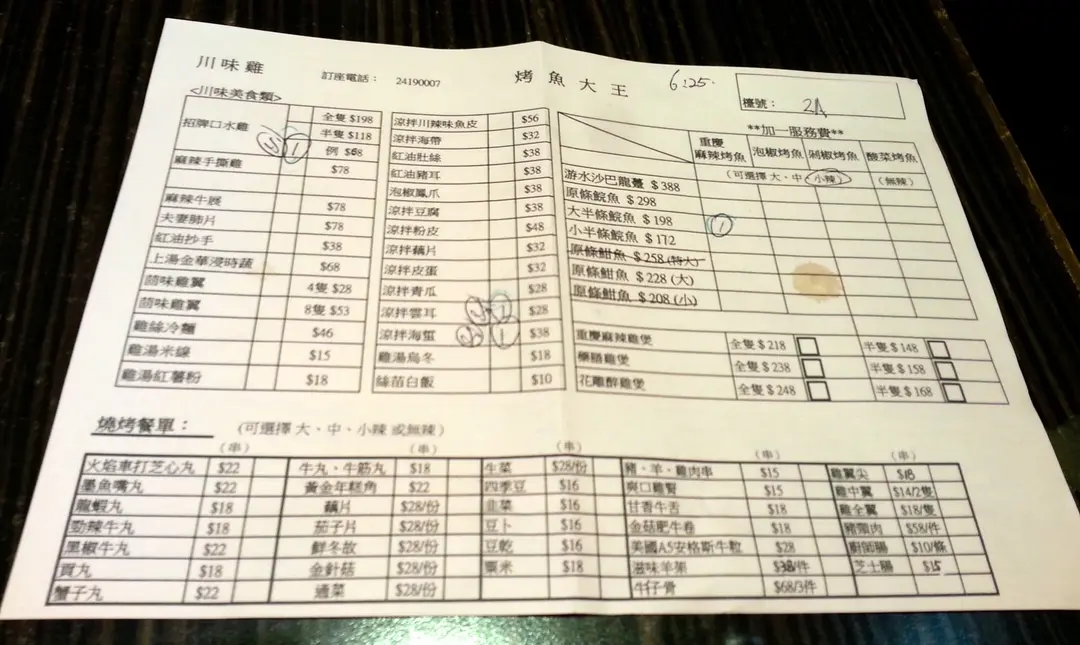 川味雞 訂座電話： 24190007 烤魚大王 6:25
檯號： 2A
<川味美食類>
**加一服務費**
招牌口水雞 全隻 $198
半隻 $118
例 $68
麻辣手撕雞 $78
麻辣牛展 $78
夫妻肺片 $78
紅油抄手 $38
上湯金華浸時蔬 $68
茴味雞翼 4隻 $28
茴味雞翼 8隻 $53
雞絲冷麵 $46
雞湯米線 $15
雞湯紅薯粉 $18
涼拌川辣味魚皮 $56
涼拌海帶 $32
紅油肚絲 $38
紅油豬耳 $38
泡椒鳳爪 $38
涼拌豆腐 $38
涼拌粉皮 $48
涼拌藕片 $32
涼拌皮蛋 $32
涼拌青瓜 $28
涼拌雲耳 $28
涼拌海蜇 $38
雞湯烏冬 $18
絲苗白飯 $10
重慶麻辣烤魚 泡椒烤魚 剁椒烤魚 酸菜烤魚
(可選擇 大、中、小辣) (無辣)
游水沙巴龍躉 $388
原條鯇魚 $298
大半條鯇魚 $198 1
小半條鯇魚 $172
原條鉗魚 $258 (特大)
原條鉗魚 $228 (大)
原條鉗魚 $208 (小)
重慶麻辣雞煲 全隻 $218 半隻 $148
藥膳雞煲 全隻 $238 半隻 $158
花雕醉雞煲 全隻 $248 半隻 $168
燒烤餐單： (可選擇 大、中、小辣 或無辣)
(串) (串) (串) (串) (串)
火焰車打芝心丸 $22 牛丸、牛筋丸 $18 生菜 $28/份 豬、羊、雞肉串 $15 雞翼尖 $18
墨魚嘴丸 $22 黃金年糕角 $22 四季豆 $16 爽口雞腎 $15 雞中翼 $14/2隻
龍蝦丸 $18 藕片 $28/份 韭菜 $16 甘香牛舌 $18 雞全翼 $18/隻
勁辣牛丸 $18 茄子片 $28/份 豆卜 $16 金菇肥牛卷 $18 豬頸肉 $58/件
黑椒牛丸 $22 鮮冬菇 $28/份 豆乾 $16 美國A5安格斯牛粒 $28 廚師腸 $10/條
貢丸 $18 金針菇 $28/份 粟米 $18 滋味羊架 $38/件 芝士腸 $15
蟹子丸 $22 通菜 $28/份 牛仔骨 $68/3件